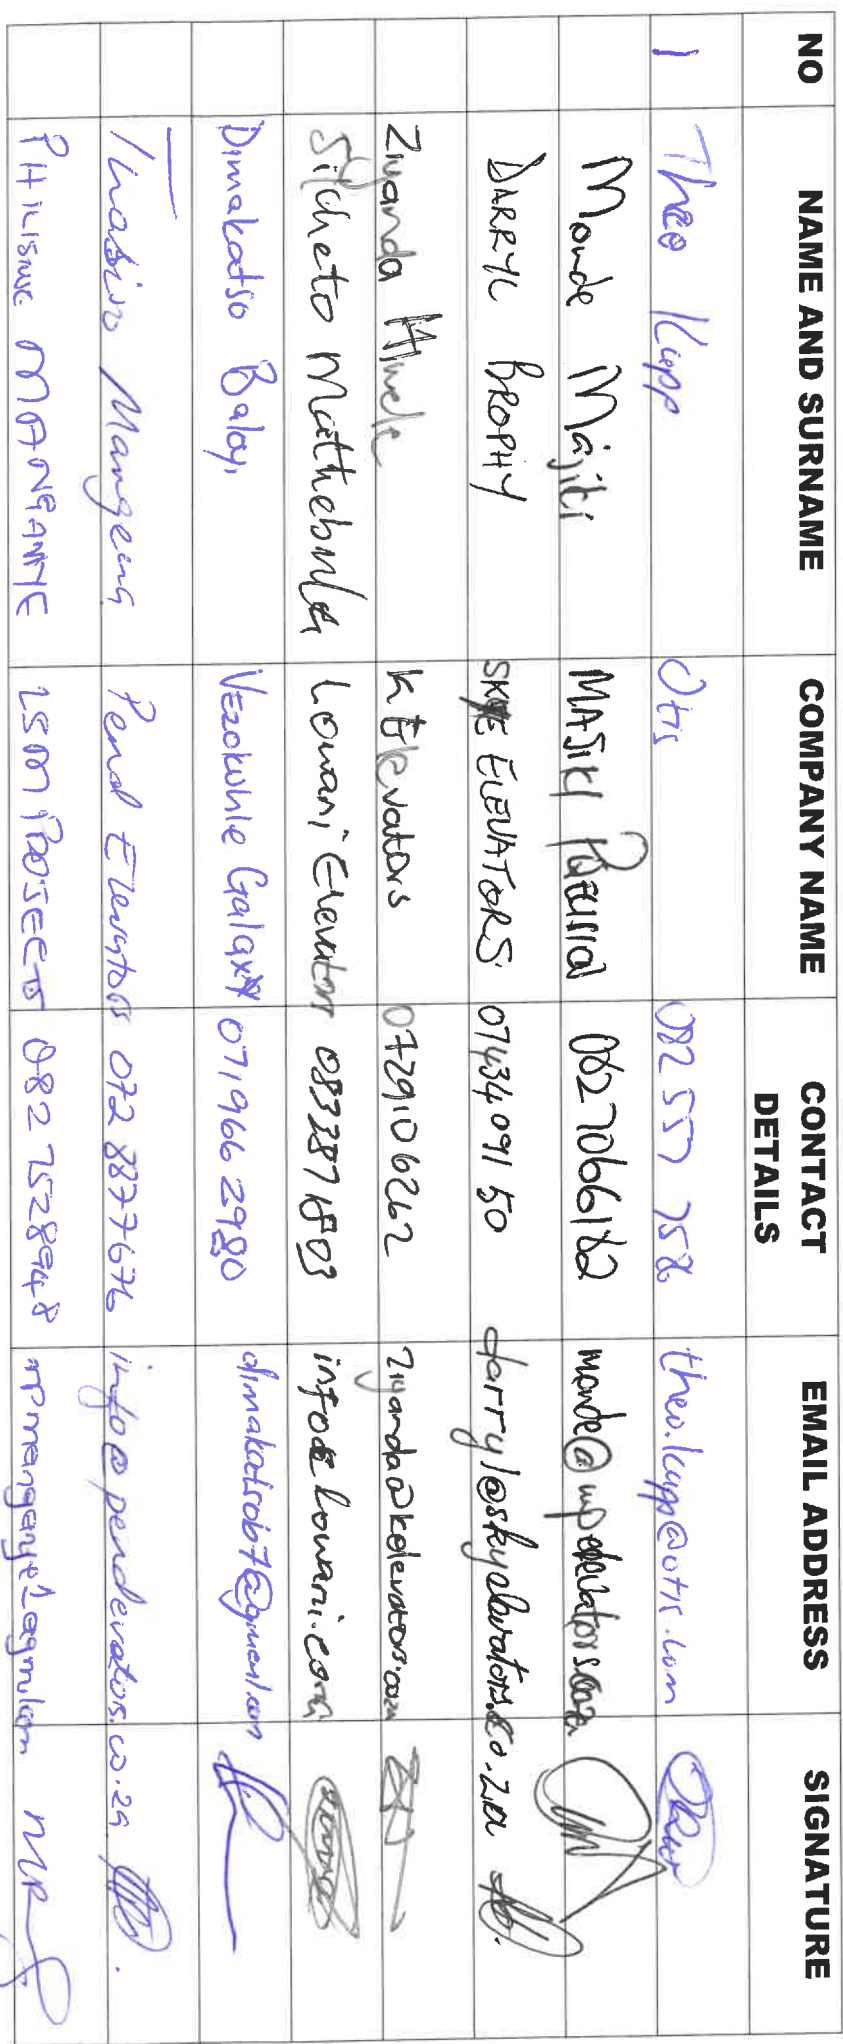 NO NAME AND SURNAME COMPANY NAME CONTACT DETAILS EMAIL ADDRESS SIGNATURE
1 Theo Kupp Otis 082 557 758 theo.kupp@otis.com
Monde Majiti MASIKI 0627066182
DARRYL BROPHY SKYE ELEVATORS 0743409150 darryl@skyelevators.co.za
Ziyanda K Elevators 0729106262 ziyanda@kelevators.co.za
Sicheto Mathebula Lowani Elevators 083387 info@lowani.com
Dimakatso Baloyi Vezokuhle Galaxy 071966 2980 dimakatsob7@gmail.com
Mangena Pend Elevators 072 8877676 info@pendevators.co.za
MANGANYE PROJECTS 082 7528948